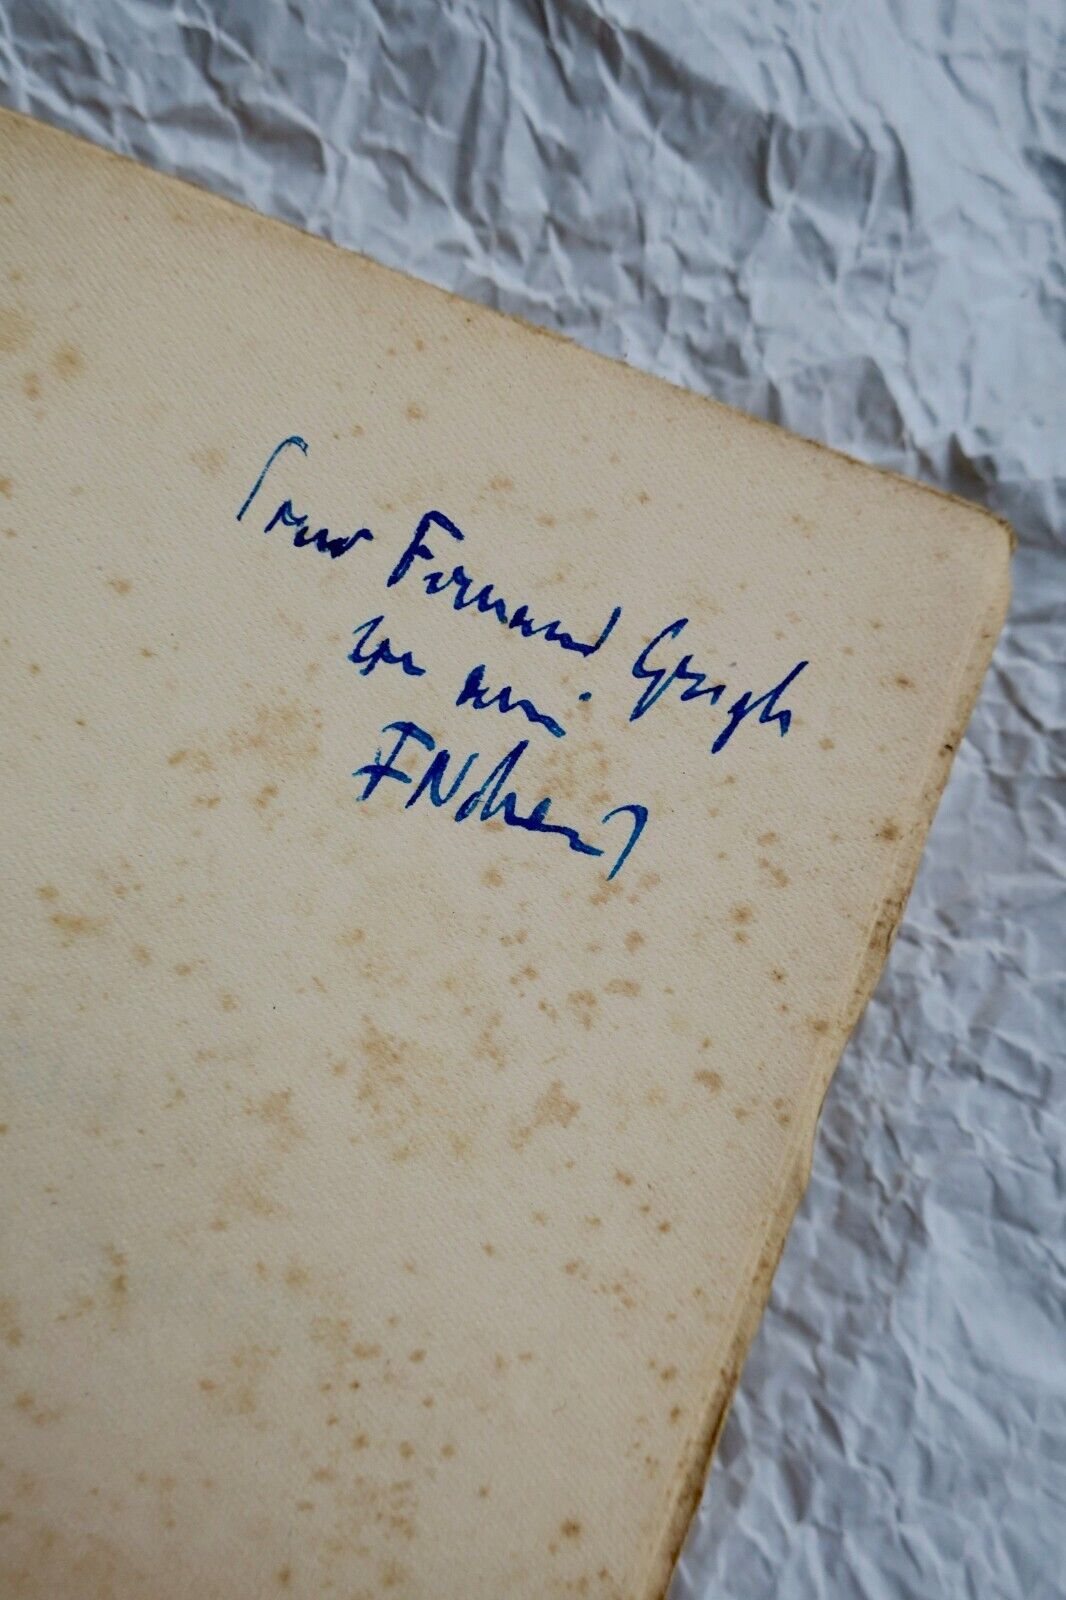 Pour Fernand Gregh
son ami
FNohain